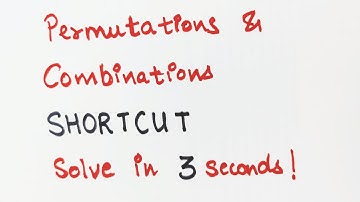 Permutations &
Combinations
SHORTCUT
Solve in 3 seconds!